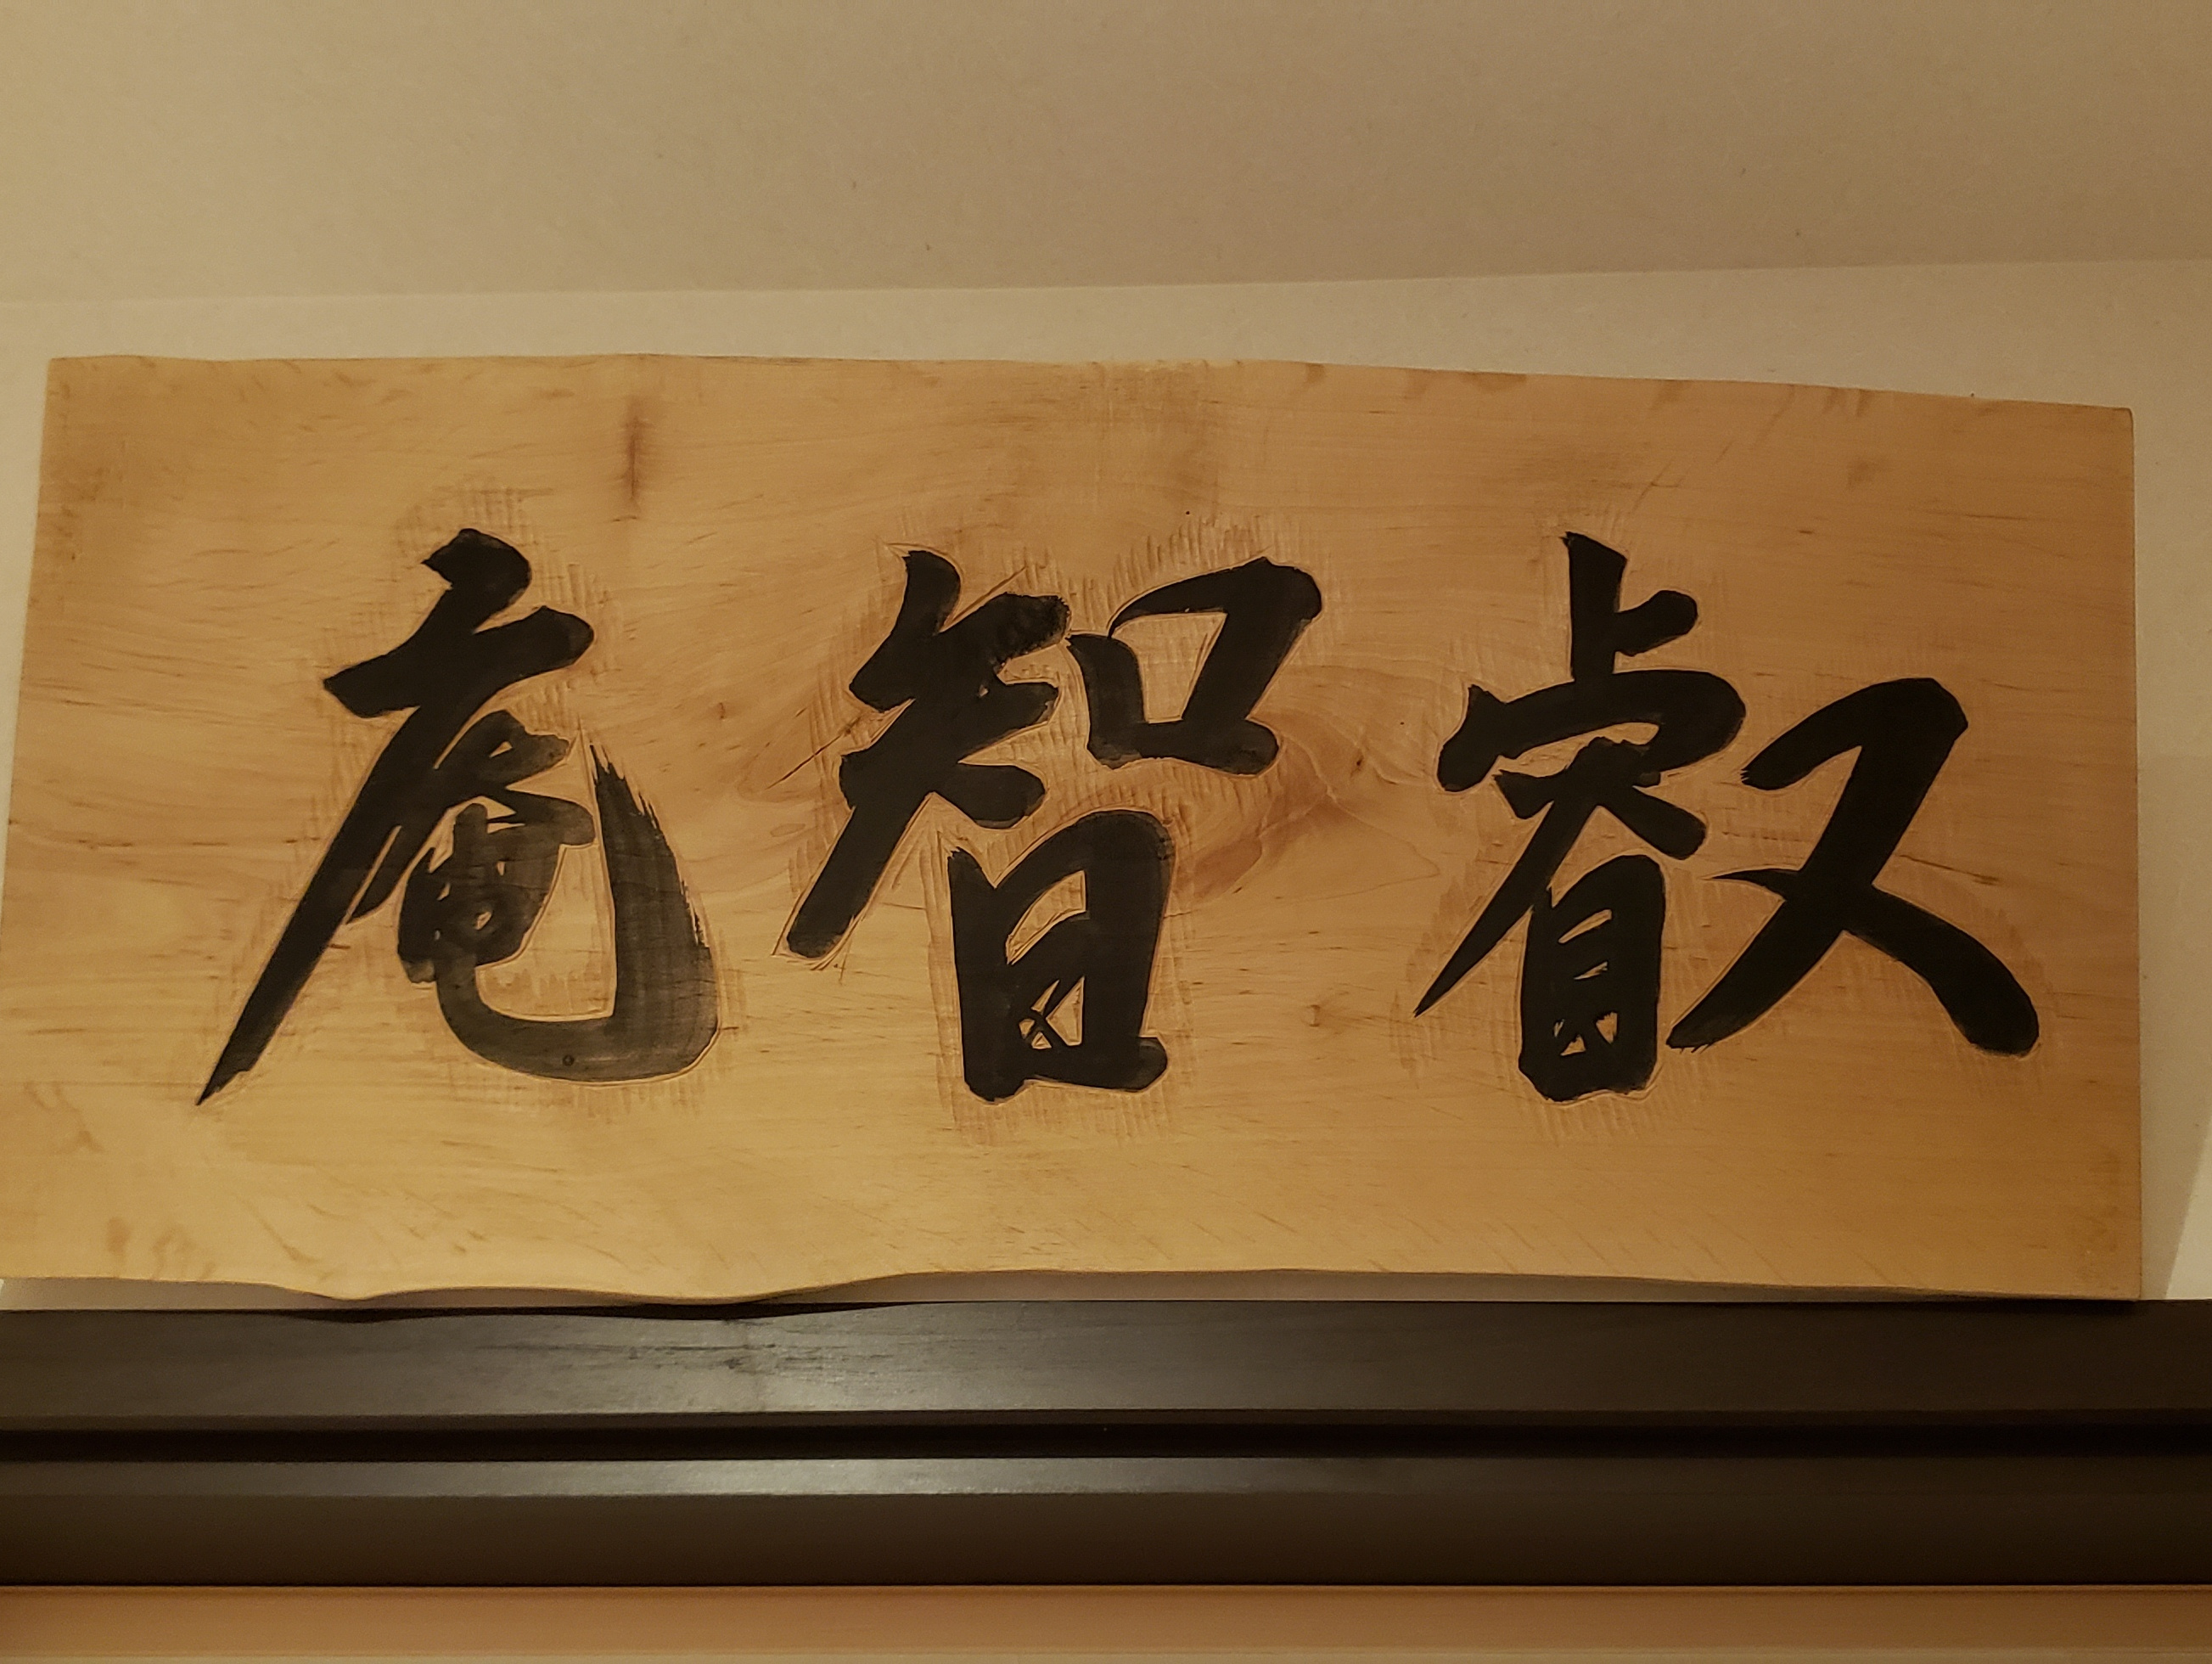 叡智庵